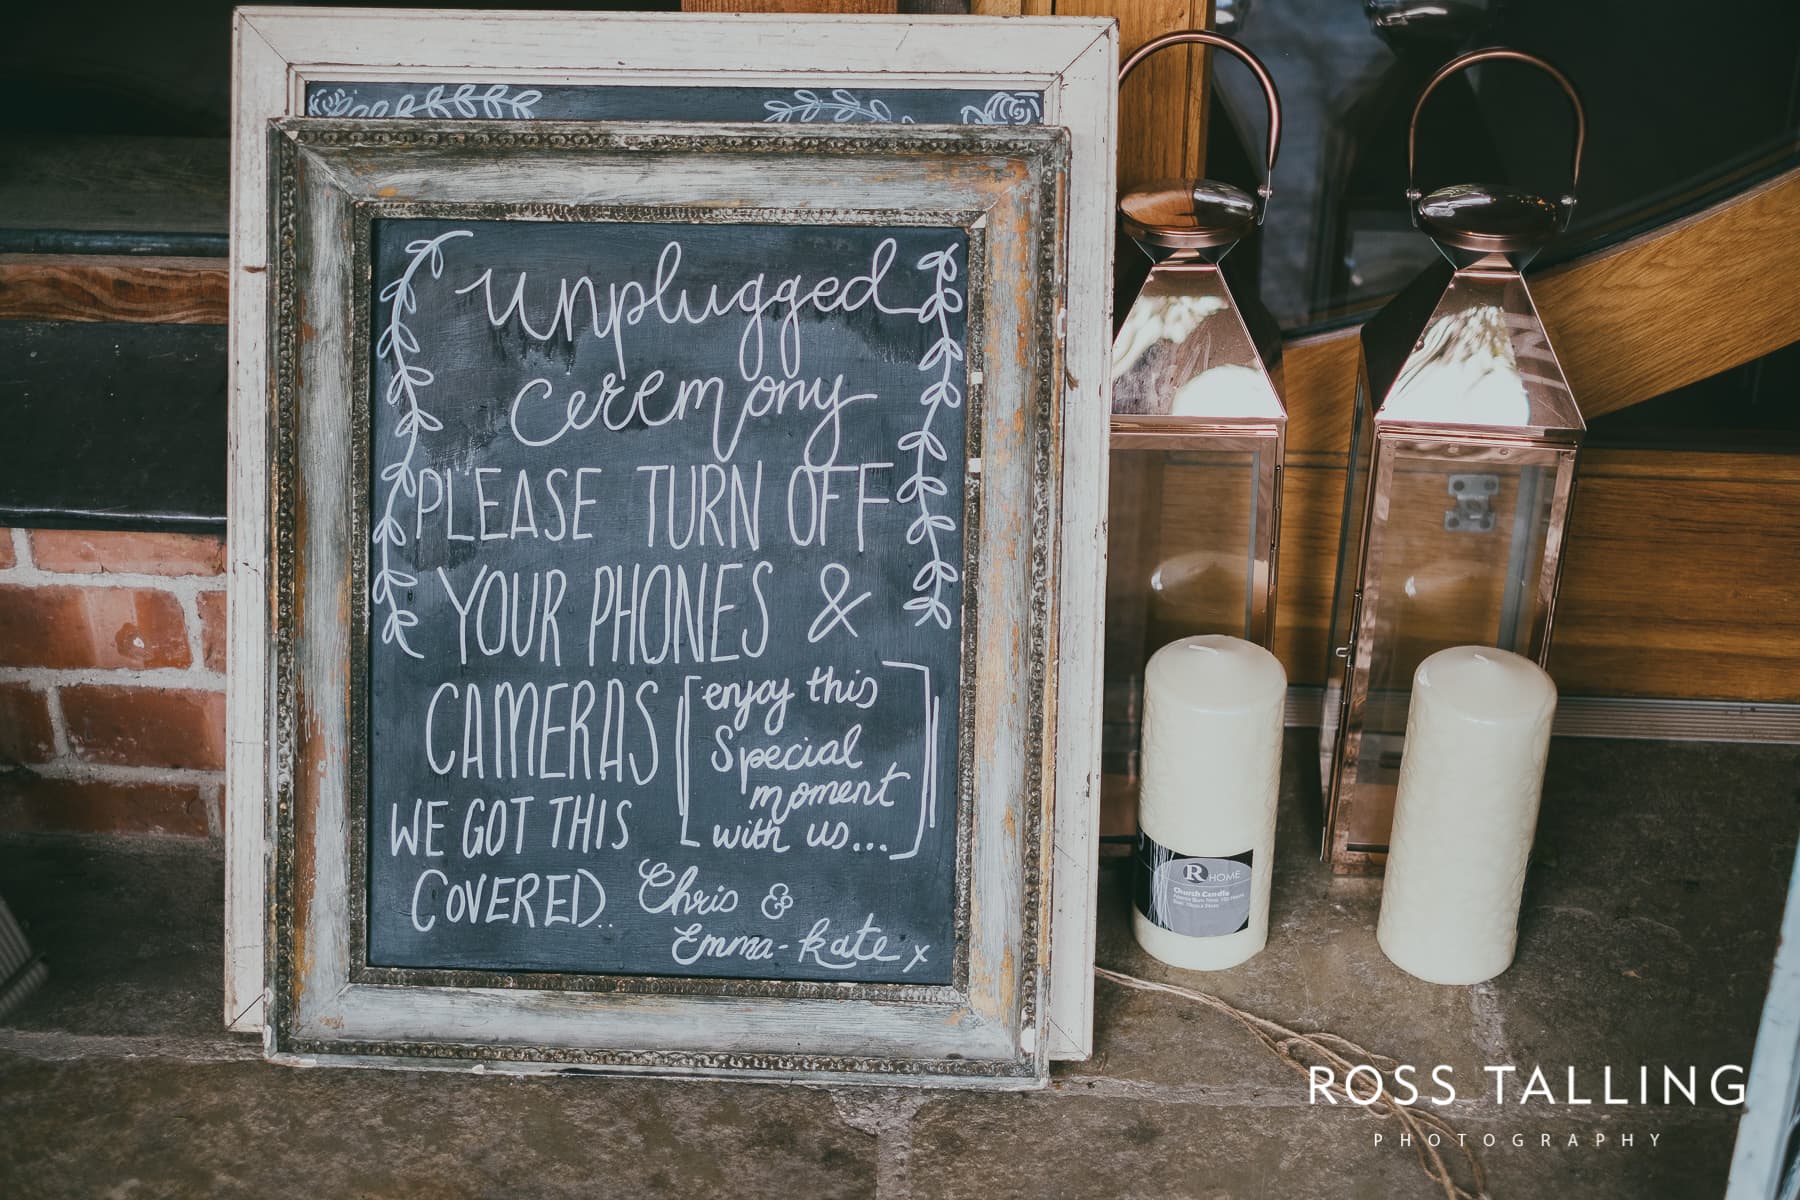 unplugged
ceremony
PLEASE TURN OFF
YOUR PHONES &
CAMERAS
[enjoy this
Special
moment
with us...]
WE GOT THIS
COVERED..
Chris &
Emma-Kate x
R HOME
Church Candle
ROSS TALLING
PHOTOGRAPHY